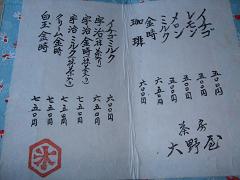 イチゴ 五〇〇円
レモン 五〇〇円
メロン 五〇〇円
ミルク 五〇〇円
金時 六〇〇円
珈琲
茶房
大野屋
イチゴミルク 六〇〇円
宇治(抹茶入り)
宇治金時(抹茶入り)
宇治ミルク(抹茶入り)
クリーム金時 七五〇円
白玉金時 七五〇円
氷